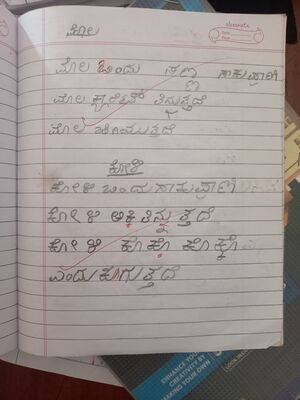 ಮೊಲ
classmate
Date
Page
ಮೊಲ ಒಂದು ಸಣ್ಣ ಸಾಕುಪ್ರಾಣಿ
ಮೊಲ ಕ್ಯಾರೆಟ್ ತಿನ್ನುತ್ತದೆ
ಮೊಲ
ಕೋಳಿ
ಕೋಳಿ ಒಂದು ಸಾಕುಪ್ರಾಣಿ
ಕೋಳಿ ಅಕ್ಕಿ ತಿನ್ನುತ್ತದೆ
ಕೋಳಿ ಕೊಕ್ಕೊ ಕೊಕ್ಕೊ
ಎಂದು ಕೂಗುತ್ತದೆ
ENHANCE YOUR
CREATIVITY BY
MAKING YOUR OWN